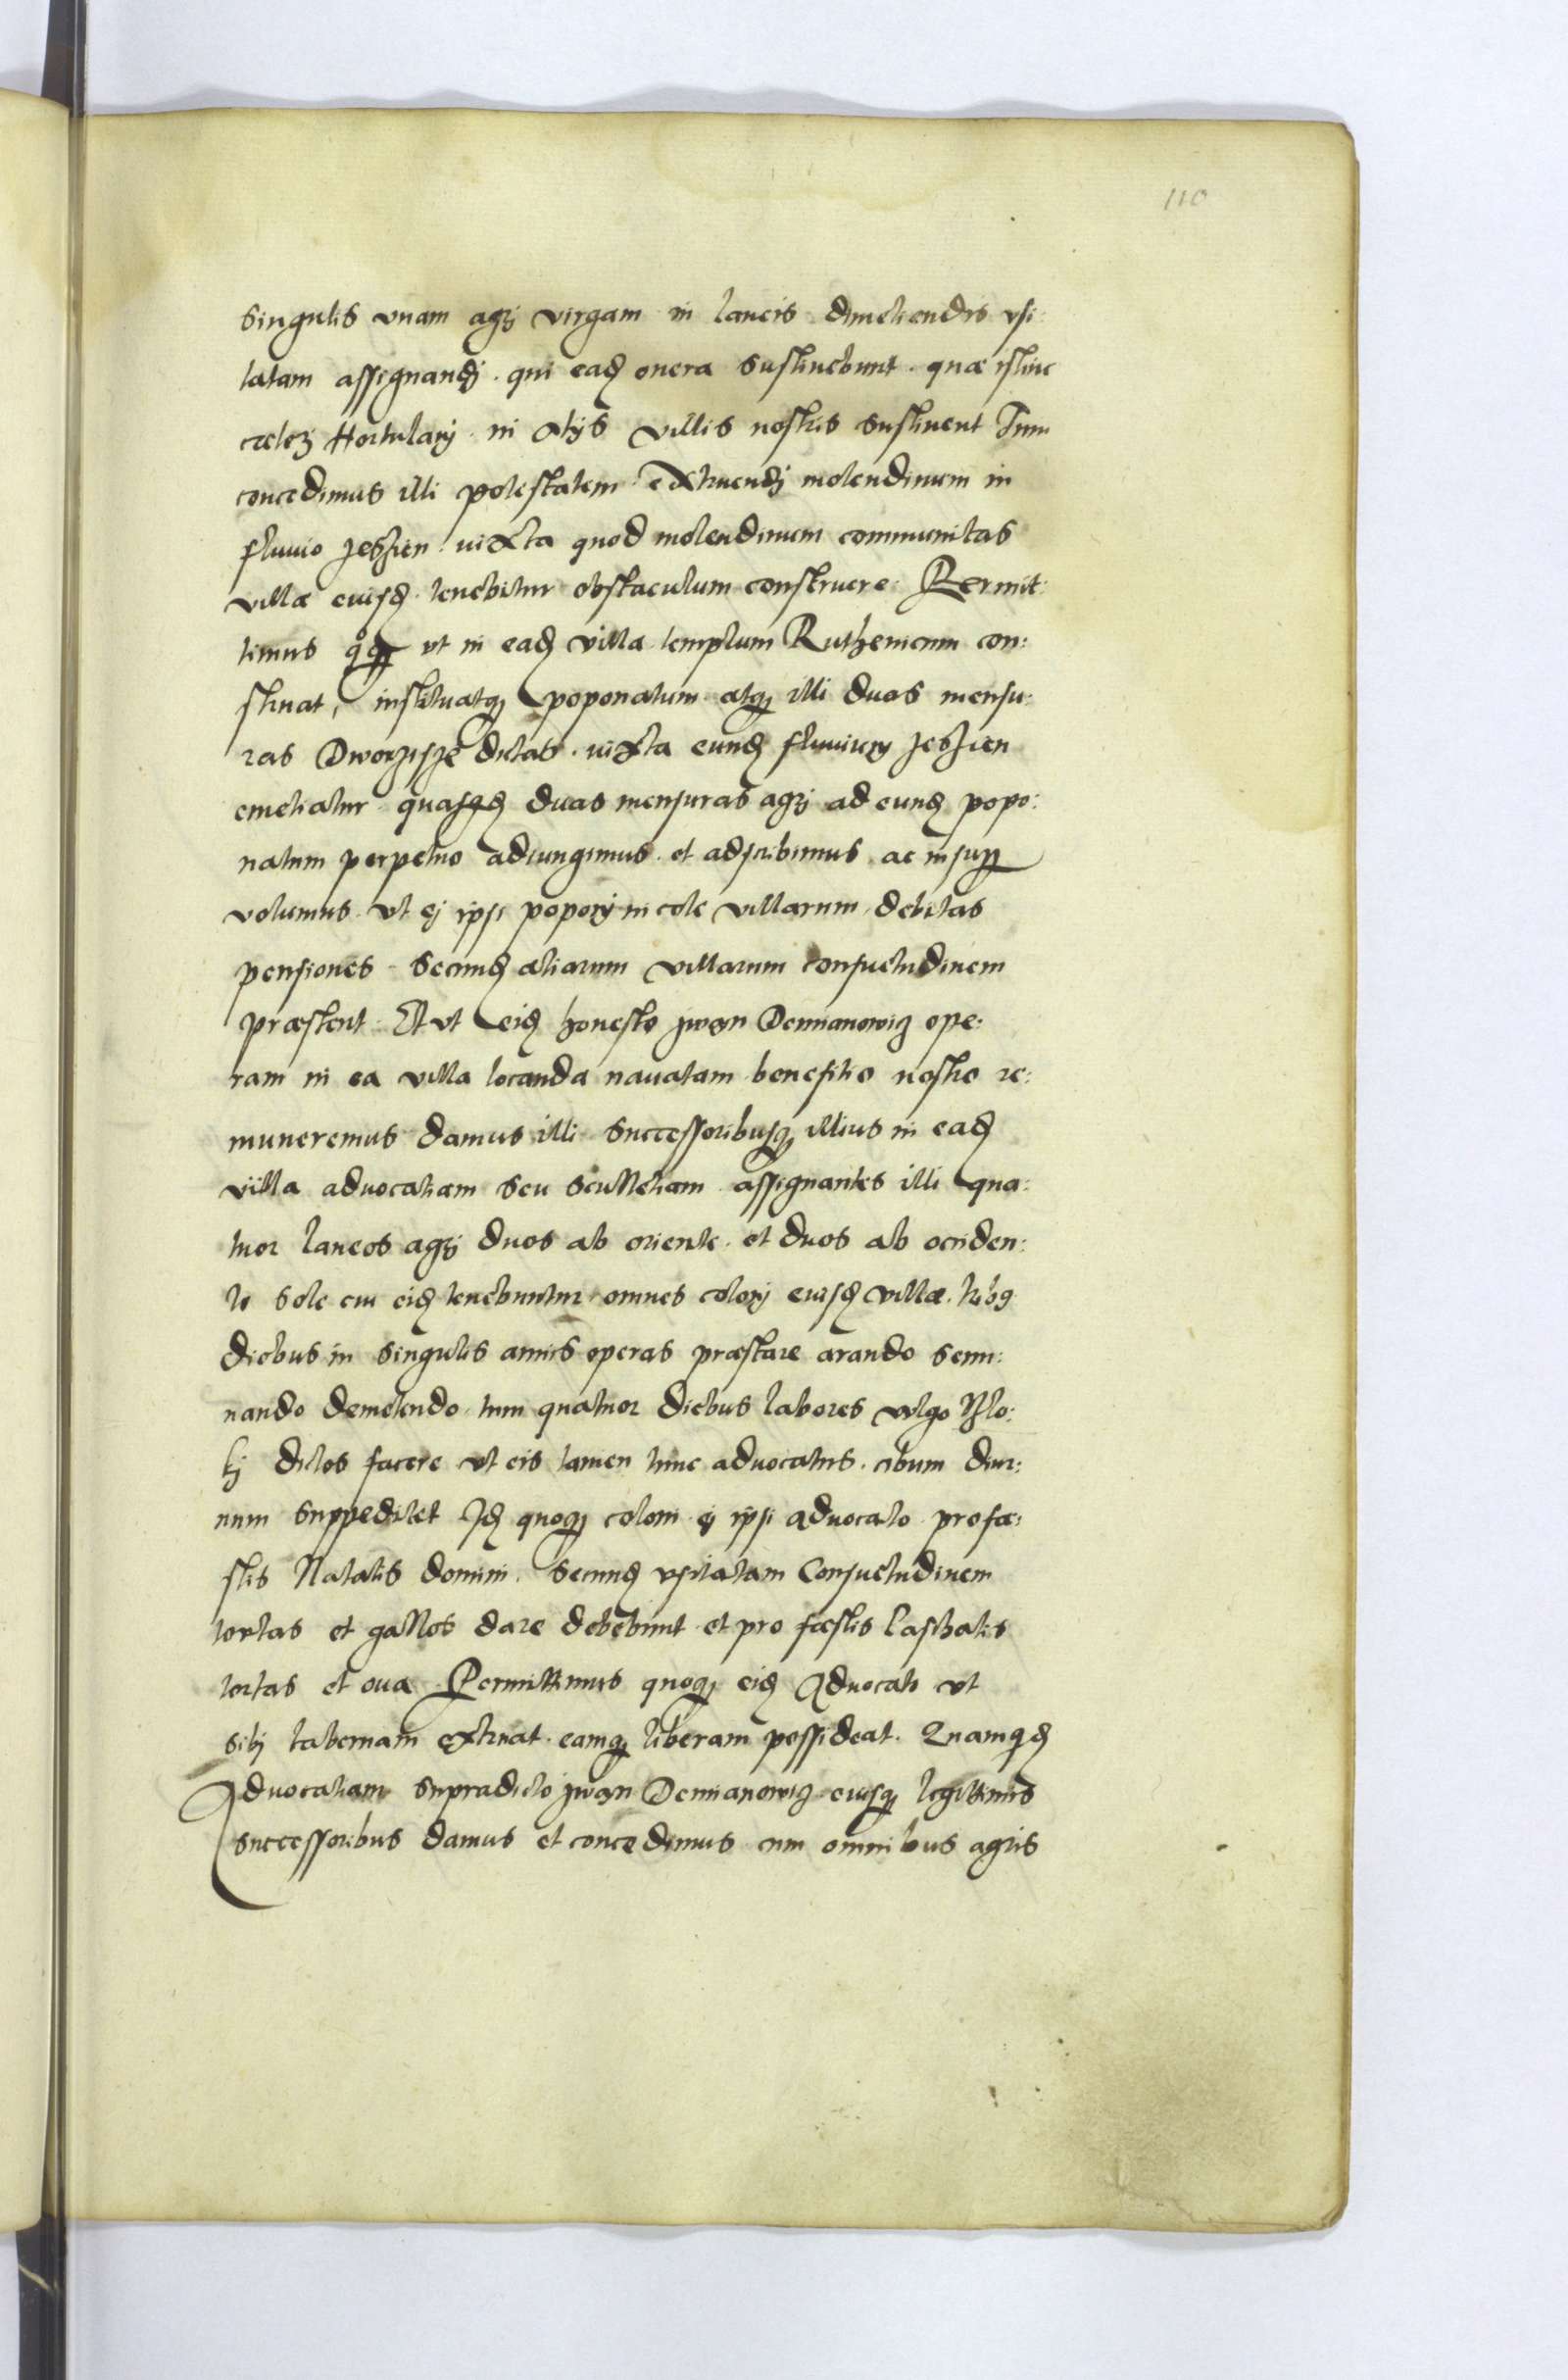 110
singulis vnam agrj virgam in laneis dimetiendis vsi:
tatam assignandj. qui eadẽ onera sustinebunt. quæ istinc
cæterj Hortulanj in alijs villis nostris sustinent Tum
concedimus illi potestatem extruendj molendinum in
fluvio Jeszien iuxta quod molendinum communitas
villæ eiusdẽ tenebitur obstaculum construere. Permit:
timus qͦqꝫ vt in eadẽ villa templum Ruthenicum con:
struat, instituatqꝫ poponatum atqꝫ illi duas mensu:
ras Dworzisze dictas. iuxta eundẽ fluuium Jeszien
emetiatur quasqdẽ duas mensuras agrj ad eundẽ popo:
natum perpetuo adiungimus et adscribimus ac insupꝑ
volumus vt ej ipsi poponj incolæ villarum debitas
pensiones secundẽ aliarum villarum consuetudinem
præstent. Et vt eidẽ honesto Jwan Demianowicz ope:
ram in ea villa locanda nauatam benefitio nostro re:
muneremus damus illi successoribusqꝫ illius in eadẽ
villa aduocatiam seu scultetiam assignantes illi qua:
tuor laneos agrj duos ab oriente et duos ab occiden:
te sole cui eidẽ tenebuntur omnes colonj eiusdẽ villæ. trib9
diebus in singulis annis operas præstare arando semi:
nando demetendo tum quatuor diebus labores vulgo Tlo:
kj dictos facere vt eis tamen tunc aduocatus. cibum diur:
num suppeditet Jdẽ quoqꝫ coloni ej ipsi aduocato pro fæ:
stis Natalis domini. secundẽ vsitatam Consuetudinem
tortas et gallos dare debebunt et pro fæstis Paschalis
tortas et oua Permittimus quoqꝫ eidẽ Aduocato vt
sibj tabernam extruat. eamqꝫ liberam possideat. Quamqdẽ
Aduocatiam supradicto Jwan Demianowicz eiusqꝫ legittimis
successoribus damus et concedimus cum omnibus agris